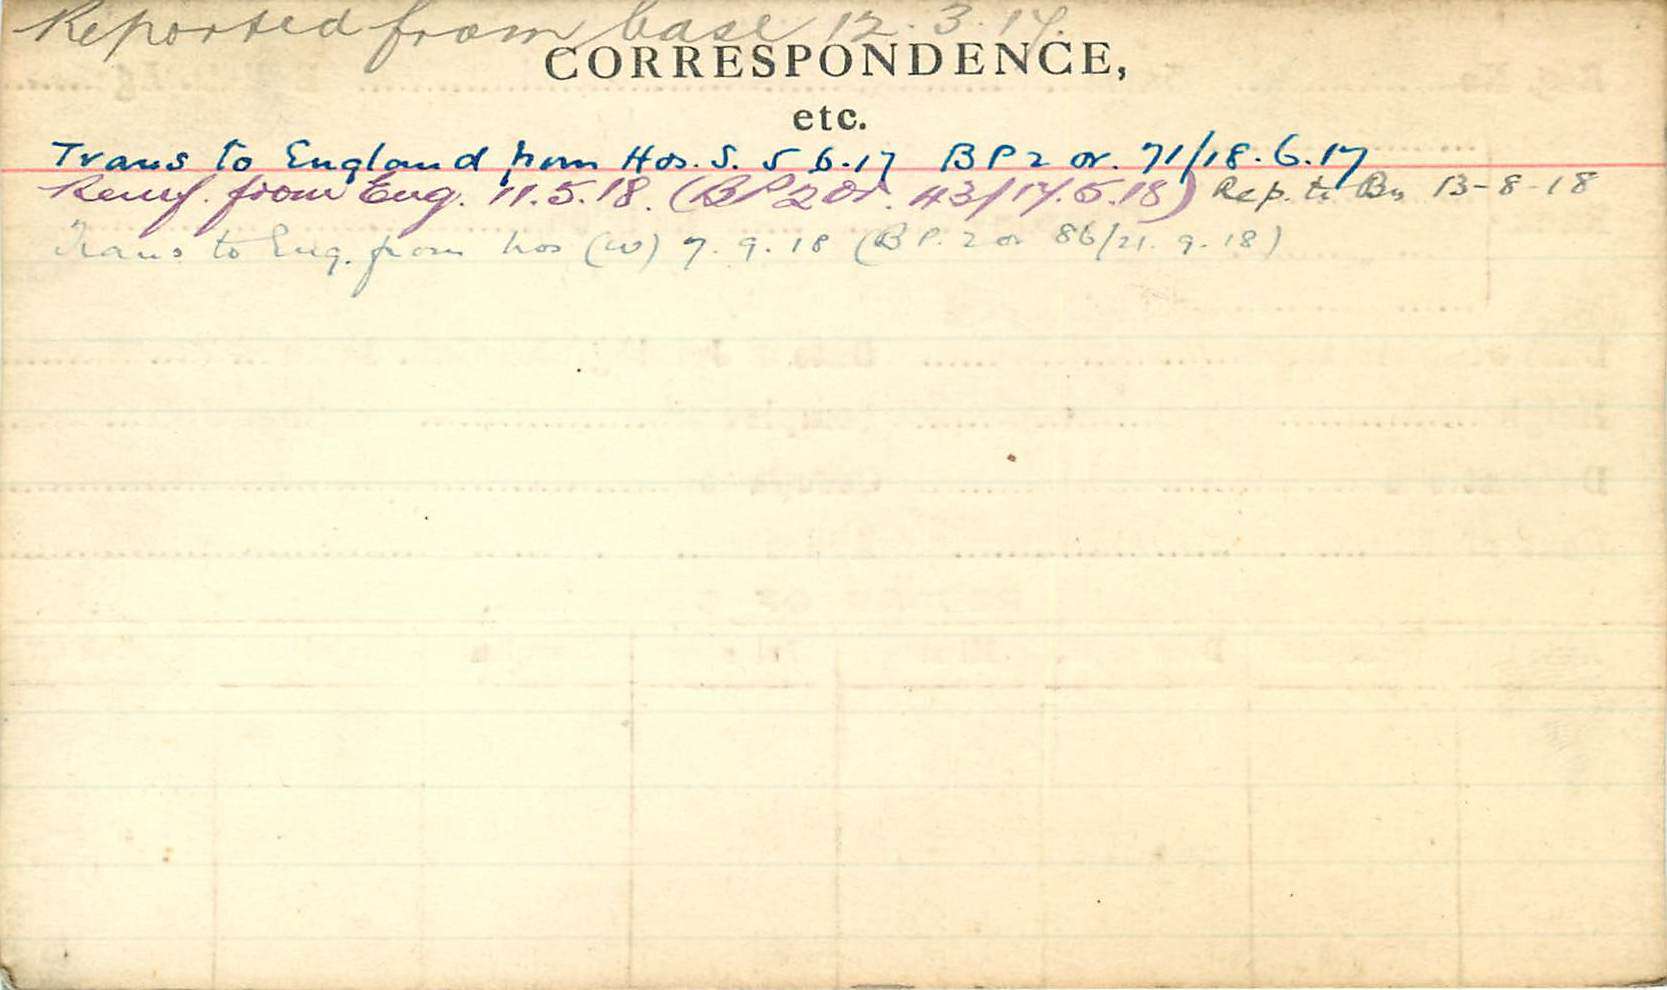 Reported from base 12.3.17.
CORRESPONDENCE,
etc.
Trans to England from Hos. S. 5 6.17 BP2 or. 71/18.6.17
Reinf. from Eng. 11.5.18. (BP2 Or. 43/17.5.18) Rep. to Bn 13-8-18
Trans to Eng. from hos (W) 7.9.18 (BP.2 or 86/21.9.18)